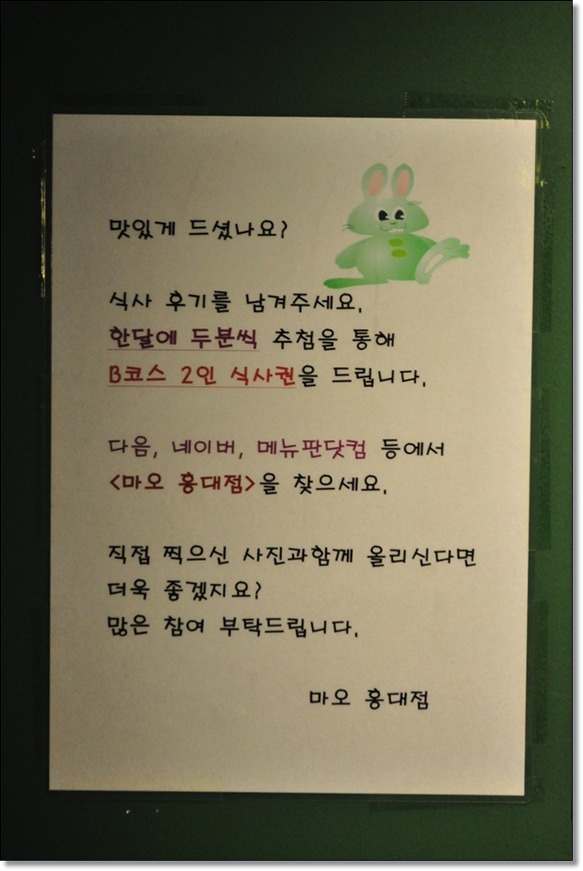 맛있게 드셨나요?
식사 후기를 남겨주세요.
한달에 두분씩 추첨을 통해
B코스 2인 식사권을 드립니다.
다음, 네이버, 메뉴판닷컴 등에서
<마오 홍대점>을 찾으세요.
직접 찍으신 사진과함께 올리신다면
더욱 좋겠지요?
많은 참여 부탁드립니다.
마오 홍대점